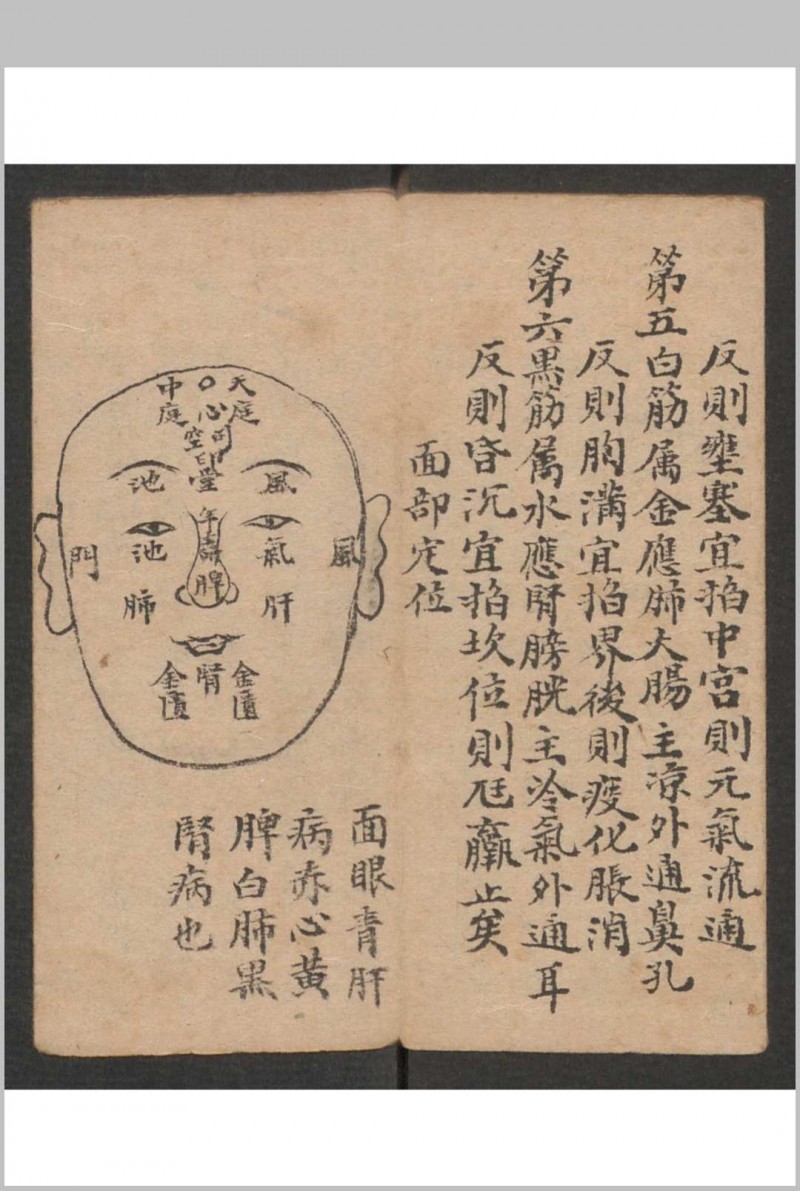 反則壅塞宜掐中宮則元氣流通
第五白筋属金應肺大腸主凉外通鼻孔
反則胸滿宜掐界後則痰化脹消
第六黑筋属水應腎膀胱主冷氣外通耳
反則昏沉宜掐坎位則尫羸止矣
面部定位
天庭
心
中庭
司空
印堂
風
池
年壽
風
氣
池
門
脾
肝
肺
金匱
腎
金匱
面眼青肝
病赤心黃
脾白肺黑
腎病也